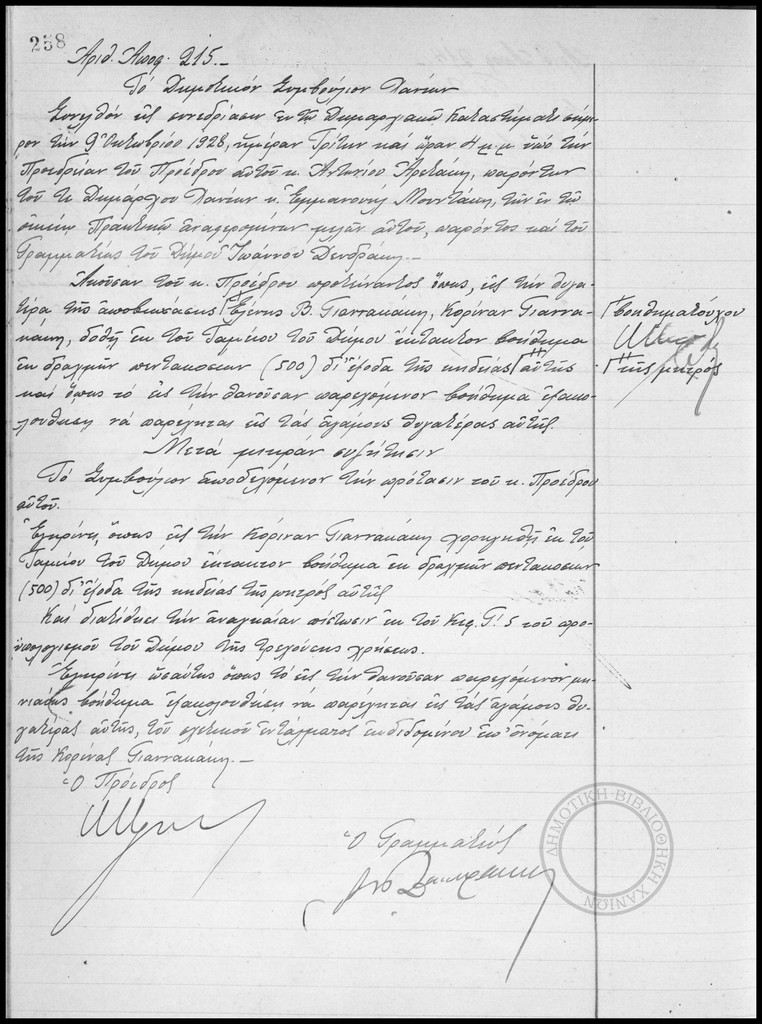 258
Ἀριθ. Ἀποφ. 215.—
Τό Δημοτικόν Συμβούλιον Χανίων
Συνελθόν εἰς συνεδρίασιν ἐν τῷ Δημαρχιακῷ Καταστήματι σήμε-
ρον τήν 9 Ὀκτωβρίου 1928, ἡμέραν Τρίτην καί ὥραν 4 μ.μ. ὑπό τήν
Προεδρείαν τοῦ Προέδρου αὐτοῦ κ. Ἀντωνίου Ἀρετάκη, παρόντων
τοῦ κ. Δημάρχου Χανίων κ. Ἐμμανουήλ Μουντάκη, τῶν ἐν τῷ
οἰκείῳ Πρακτικῷ ἀναφερομένων μελῶν αὐτοῦ, παρόντος καί τοῦ
Γραμματέως τοῦ Δήμου Ἰωάννου Δενδράκη.—
Ἀκοῦσαν τοῦ κ. Προέδρου προτείναντος ὅπως, εἰς τήν θυγα-
τέρα τῆς ἀποβιωσάσης Γ Ἑλένης Β. Γιαννακάκη, Κορίναν Γιαννα-
κάκη, δοθῇ ἐκ τοῦ Ταμείου τοῦ Δήμου ἔκτακτον βοήθημα
ἐκ δραχμῶν πεντακοσίων (500) δι' ἔξοδα τῆς κηδείας Γ αὐτῆς
καί ὅπως τό εἰς τήν θανοῦσαν παρεχόμενον βοήθημα ἐξακο-
λουθήσῃ νά παρέχηται εἰς τάς ἀγάμους θυγατέρας αὐτῆς.
Γ βοηθηματούχου
Γ τῆς μητρός
Μετά μικράν συζήτησιν
Τό Συμβούλιον ἀποδεχόμενον τήν πρότασιν τοῦ κ. Προέδρου
αὐτοῦ.
Ἐγκρίνει, ὅπως εἰς τήν Κορίναν Γιαννακάκη χορηγηθῇ ἐκ τοῦ
Ταμείου τοῦ Δήμου ἔκτακτον βοήθημα ἐκ δραχμῶν πεντακοσίων
(500) δι' ἔξοδα τῆς κηδείας τῆς μητρός αὐτῆς
Καί διατίθησι τήν ἀναγκαίαν πίστωσιν ἐκ τοῦ Κεφ. Γ! 5 τοῦ προ-
ϋπολογισμοῦ τοῦ Δήμου τῆς τρεχούσης χρήσεως.
Ἐγκρίνει ὡσαύτως ὅπως τό εἰς τήν θανοῦσαν παρεχόμενον μη-
νιαίως βοήθημα ἐξακολουθήσῃ νά παρέχηται εἰς τάς ἀγάμους θυ-
γατέρας αὐτῆς, τοῦ σχετικοῦ ἐντάλματος ἐκδιδομένου ἐπ' ὀνόματι
τῆς Κορίνας Γιαννακάκη.—
Ὁ Πρόεδρος
Ὁ Γραμματεύς
ΔΗΜΟΤΙΚΗ ΒΙΒΛΙΟΘΗΚΗ ΧΑΝΙΩΝ